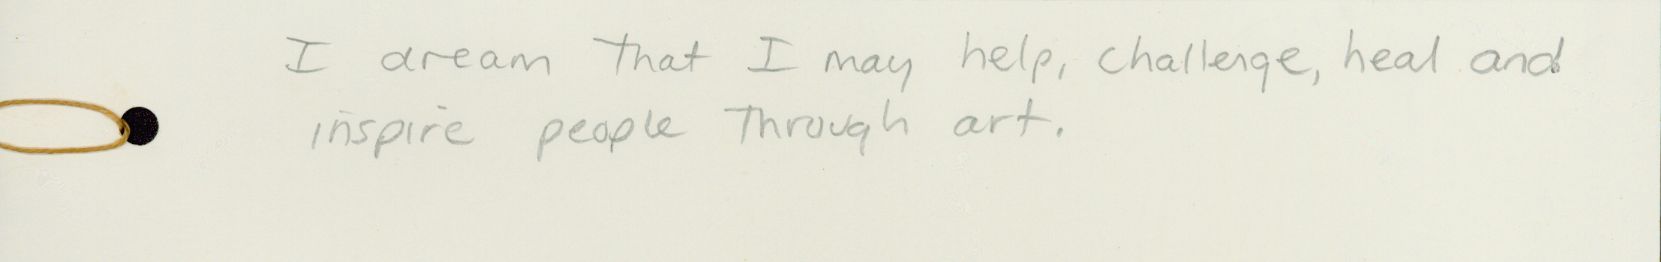 I dream that I may help, challenge, heal and
inspire people through art.